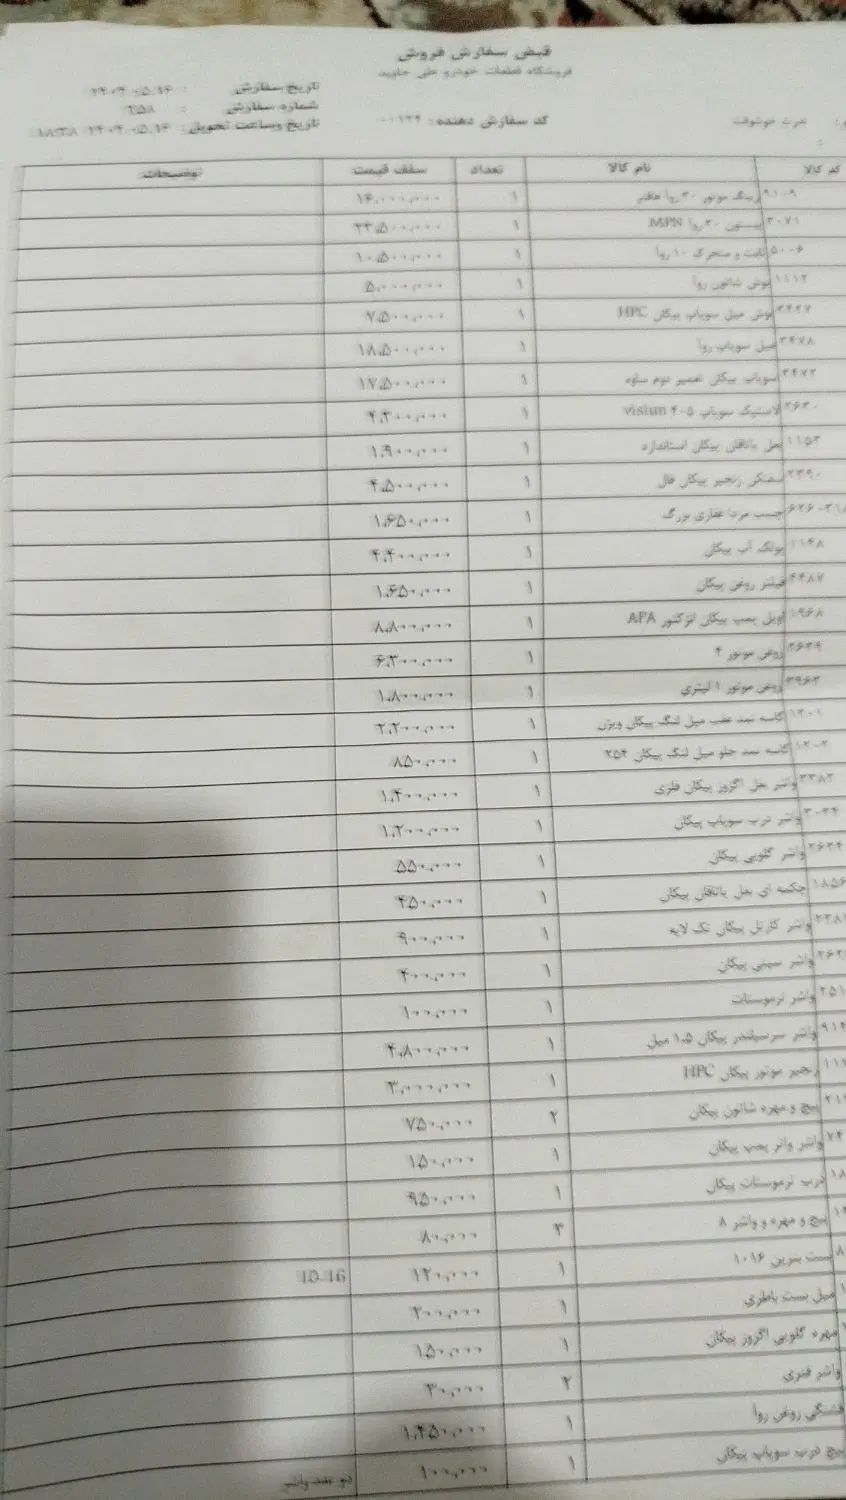 قبض سفارش فروش
فروشگاه قطعات خودرو علی جاوید
تاریخ سفارش : ۲۴۰۴.۰۵.۱۶
شماره سفارش : ۲۵۸
کد سفارش دهنده : ۰۰۱۲۴ تاریخ وساعت تحویل : ۲۴۰۴.۰۵.۱۶
کد کالا نام کالا تعداد سقف قیمت توضیحات
۹۱۰۹ رینگ موتور ۳۰ روا ۱ ۱۶،۰۰۰،۰۰۰
۳۰۷۱ پیستون ۳۰ روا MPN ۱ ۲۳،۵۰۰،۰۰۰
۵۰۰۶ ثابت و متحرک ۱۰ روا ۱ ۱۰،۵۰۰،۰۰۰
۱۱۱۲ بوش شاتون روا ۱ ۵،۰۰۰،۰۰۰
۳۴۲۷ بوش میل سوپاپ پیکان HPC ۱ ۷،۵۰۰،۰۰۰
۳۴۷۸ میل سوپاپ روا ۱ ۱۸،۵۰۰،۰۰۰
۳۴۷۲ سوپاپ پیکان تعمیر دوم ساوه ۱ ۱۷،۵۰۰،۰۰۰
۲۶۳۰ لاستیک سوپاپ ۴۰۵ vislun ۱ ۴،۳۰۰،۰۰۰
۱۱۵۳ بغل یاتاقان پیکان استاندارد ۱ ۱،۹۰۰،۰۰۰
۲۳۹۰ سفتکن زنجیر پیکان فال ۱ ۴،۵۰۰،۰۰۰
چسب مرداغفاری بزرگ ۱ ۱،۶۵۰،۰۰۰
۱۱۴۸ پولک آب پیکان ۱ ۴،۴۰۰،۰۰۰
۴۴۸۷ فیلتر روغن پیکان ۱ ۱،۶۵۰،۰۰۰
۱۹۶۸ اویل پمپ پیکان انژکتور APA ۱ ۸،۸۰۰،۰۰۰
۲۶۳۹ روغن موتور ۴ ۱ ۶،۳۰۰،۰۰۰
۳۹۶۳ روغن موتور ۱ لیتری ۱ ۱،۸۰۰،۰۰۰
۱۲۰۱ کاسه نمد عقب میل لنگ پیکان ویژن ۱ ۲،۲۰۰،۰۰۰
۱۲۰۲ کاسه نمد جلو میل لنگ پیکان ۲۵۴ ۱ ۸۵۰،۰۰۰
۳۳۸۳ واشر بغل اگزوز پیکان فلزی ۱ ۱،۴۰۰،۰۰۰
۳۰۳۴ واشر درب سوپاپ پیکان ۱ ۱،۲۰۰،۰۰۰
۲۶۳۴ واشر گلویی پیکان ۱ ۵۵۰،۰۰۰
۱۸۵۶ چکمه ای بغل یاتاقان پیکان ۱ ۴۵۰،۰۰۰
واشر کارتل پیکان تک لایه ۱ ۹۰۰،۰۰۰
واشر سینی پیکان ۱ ۴۰۰،۰۰۰
واشر ترموستات ۱ ۱۰۰،۰۰۰
واشر سرسیلندر پیکان ۱.۵ میل ۱ ۴،۸۰۰،۰۰۰
زنجیر موتور پیکان HPC ۱ ۳،۰۰۰،۰۰۰
پیچ و مهره شاتون پیکان ۲ ۷۵۰،۰۰۰
واشر واتر پمپ پیکان ۱ ۱۵۰،۰۰۰
درب ترموستات پیکان ۱ ۹۵۰،۰۰۰
پیچ و مهره و واشر ۸ ۳ ۸۰،۰۰۰
بست بنزین ۱۰۱۶ ۱ ۱۲۰،۰۰۰ 10-16
میل بست باطری ۱ ۲۰۰،۰۰۰
مهره گلویی اگزوز پیکان ۱ ۱۵۰،۰۰۰
واشر فنری ۲ ۳۰،۰۰۰
فشنگی روغن روا ۱ ۱،۲۵۰،۰۰۰
پیچ درب سوپاپ پیکان ۱ ۱۰۰،۰۰۰ دو عدد واشر